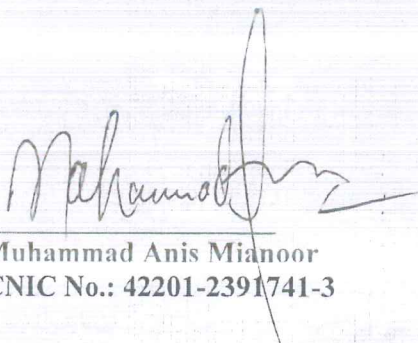 Muhammad Anis Mianoor
CNIC No.: 42201-2391741-3